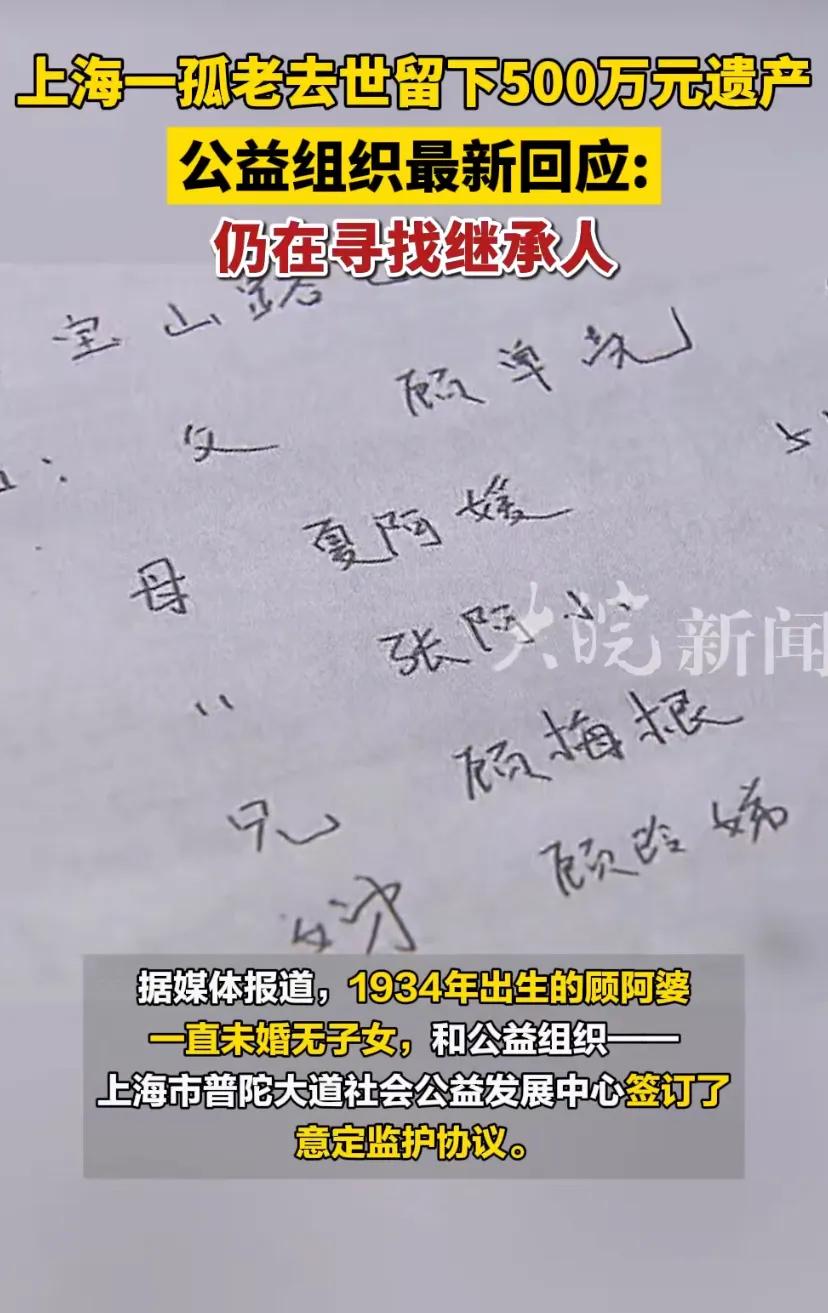 上海一孤老去世留下500万元遗产
公益组织最新回应:
仍在寻找继承人
宝山路
父 顾单
母 夏阿媛
大皖新闻
〃 张阿小
兄 顾梅根
顾玲娣
据媒体报道，1934年出生的顾阿婆
一直未婚无子女，和公益组织——
上海市普陀大道社会公益发展中心签订了
意定监护协议。